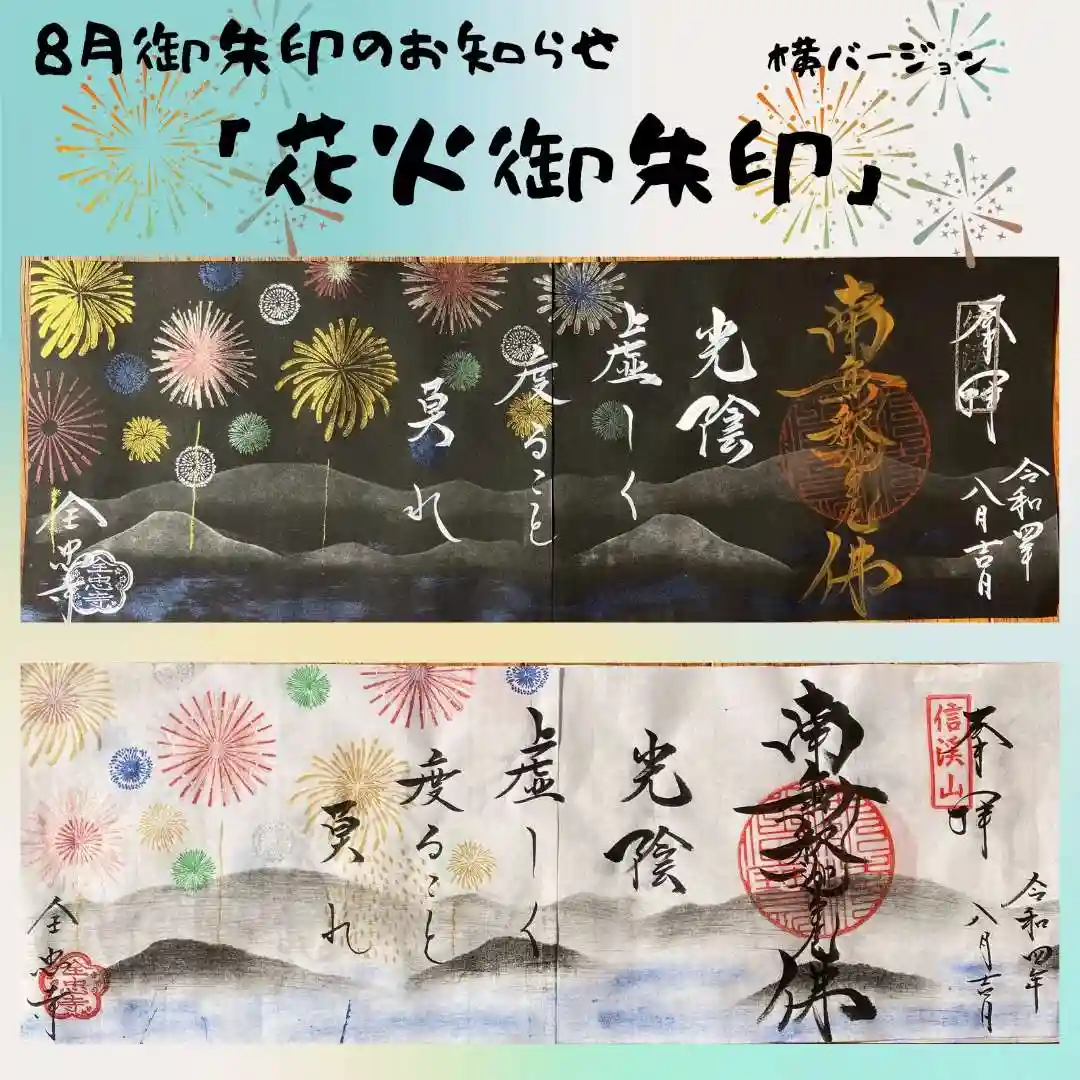 8月御朱印のお知らせ
横バージョン
「花火御朱印」
奉拝
令和四年
八月吉日
南無釈迦牟尼佛
光陰
虚しく
度ること
莫れ
全忠寺
全忠寺
信渓山
奉拝
令和四年
八月吉日
南無釈迦牟尼佛
光陰
虚しく
度ること
莫れ
全忠寺
全忠寺